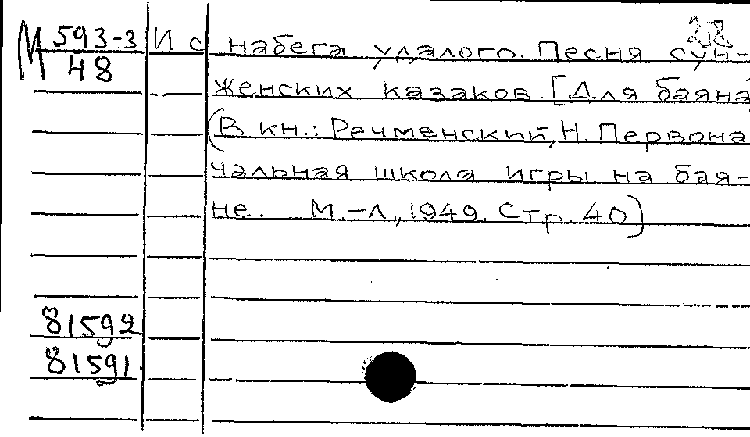 М 593-3 И с набега удалого. Песня сун-
48
женских казаков. [Для баяна
(В кн.: Речменский, Н. Первона
чальная школа игры на бая-
не. М.-Л., 1949. Стр. 40)]
81592
81591